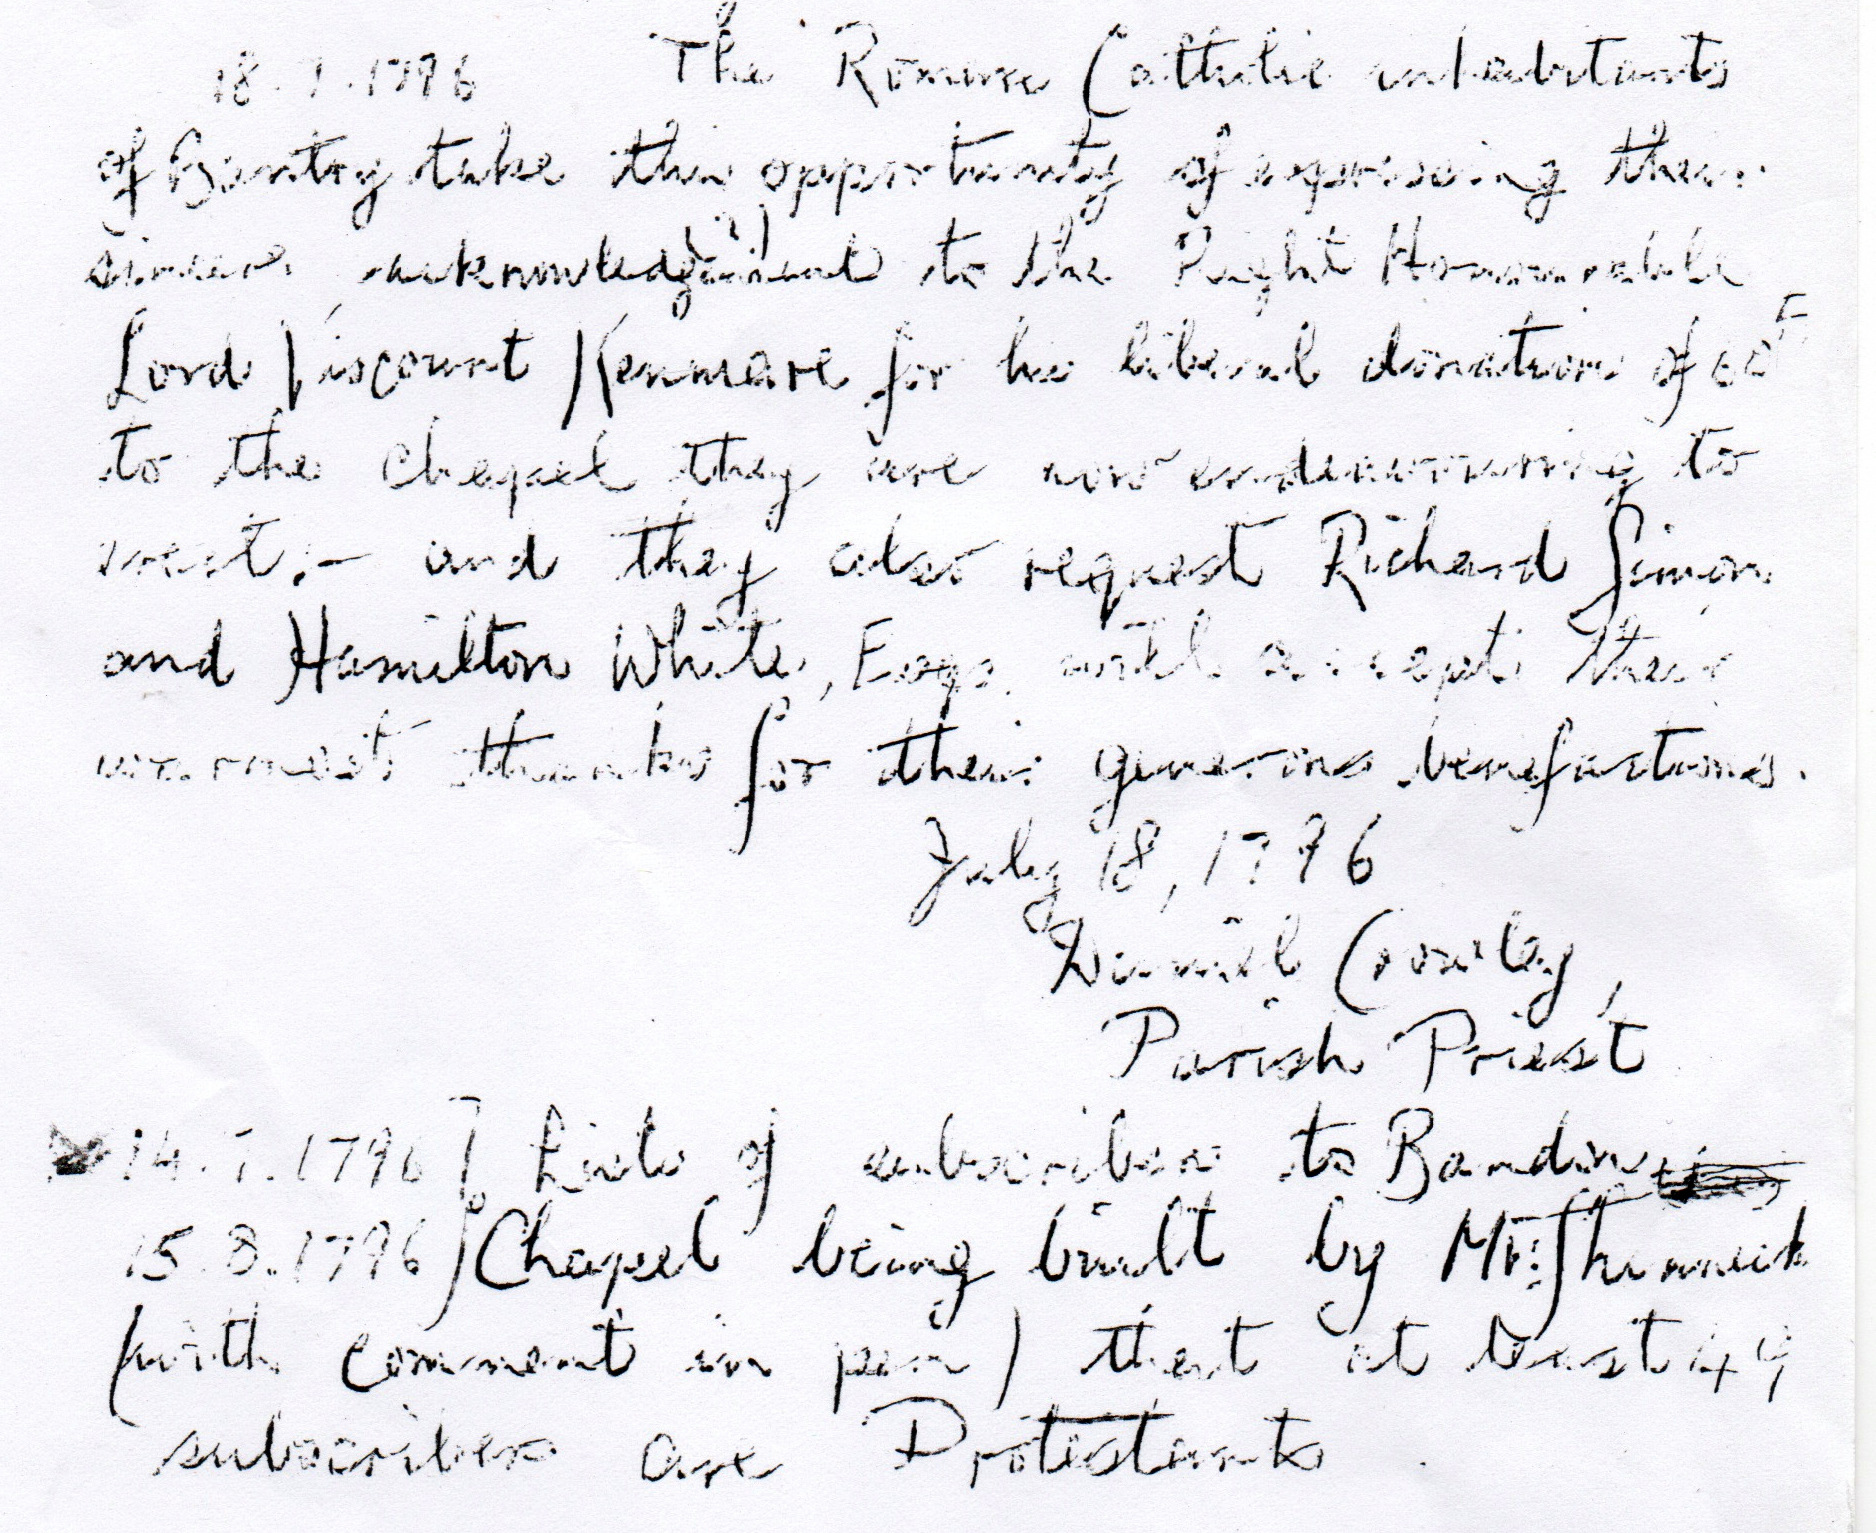 18.7.1796 The Roman Catholic inhabitants
of Bantry take this opportunity of expressing their
sincere acknowledg(?)ment to the Right Honourable
Lord Viscount Kenmare for his liberal donation of
to the Chapel they are now endeavouring to
erect;- and they also request Richard Simon
and Hamilton White, Esqs. will accept their
warmest thanks for their generous benefactions.
July 18, 1796
Daniel Crowley,
Parish Priest
14.7.1796] Lists of subscribers to Bandon
15.8.1796] Chapel being built by Mr. Shinnick
(with comment in pen) that at least 49
subscribers are Protestants